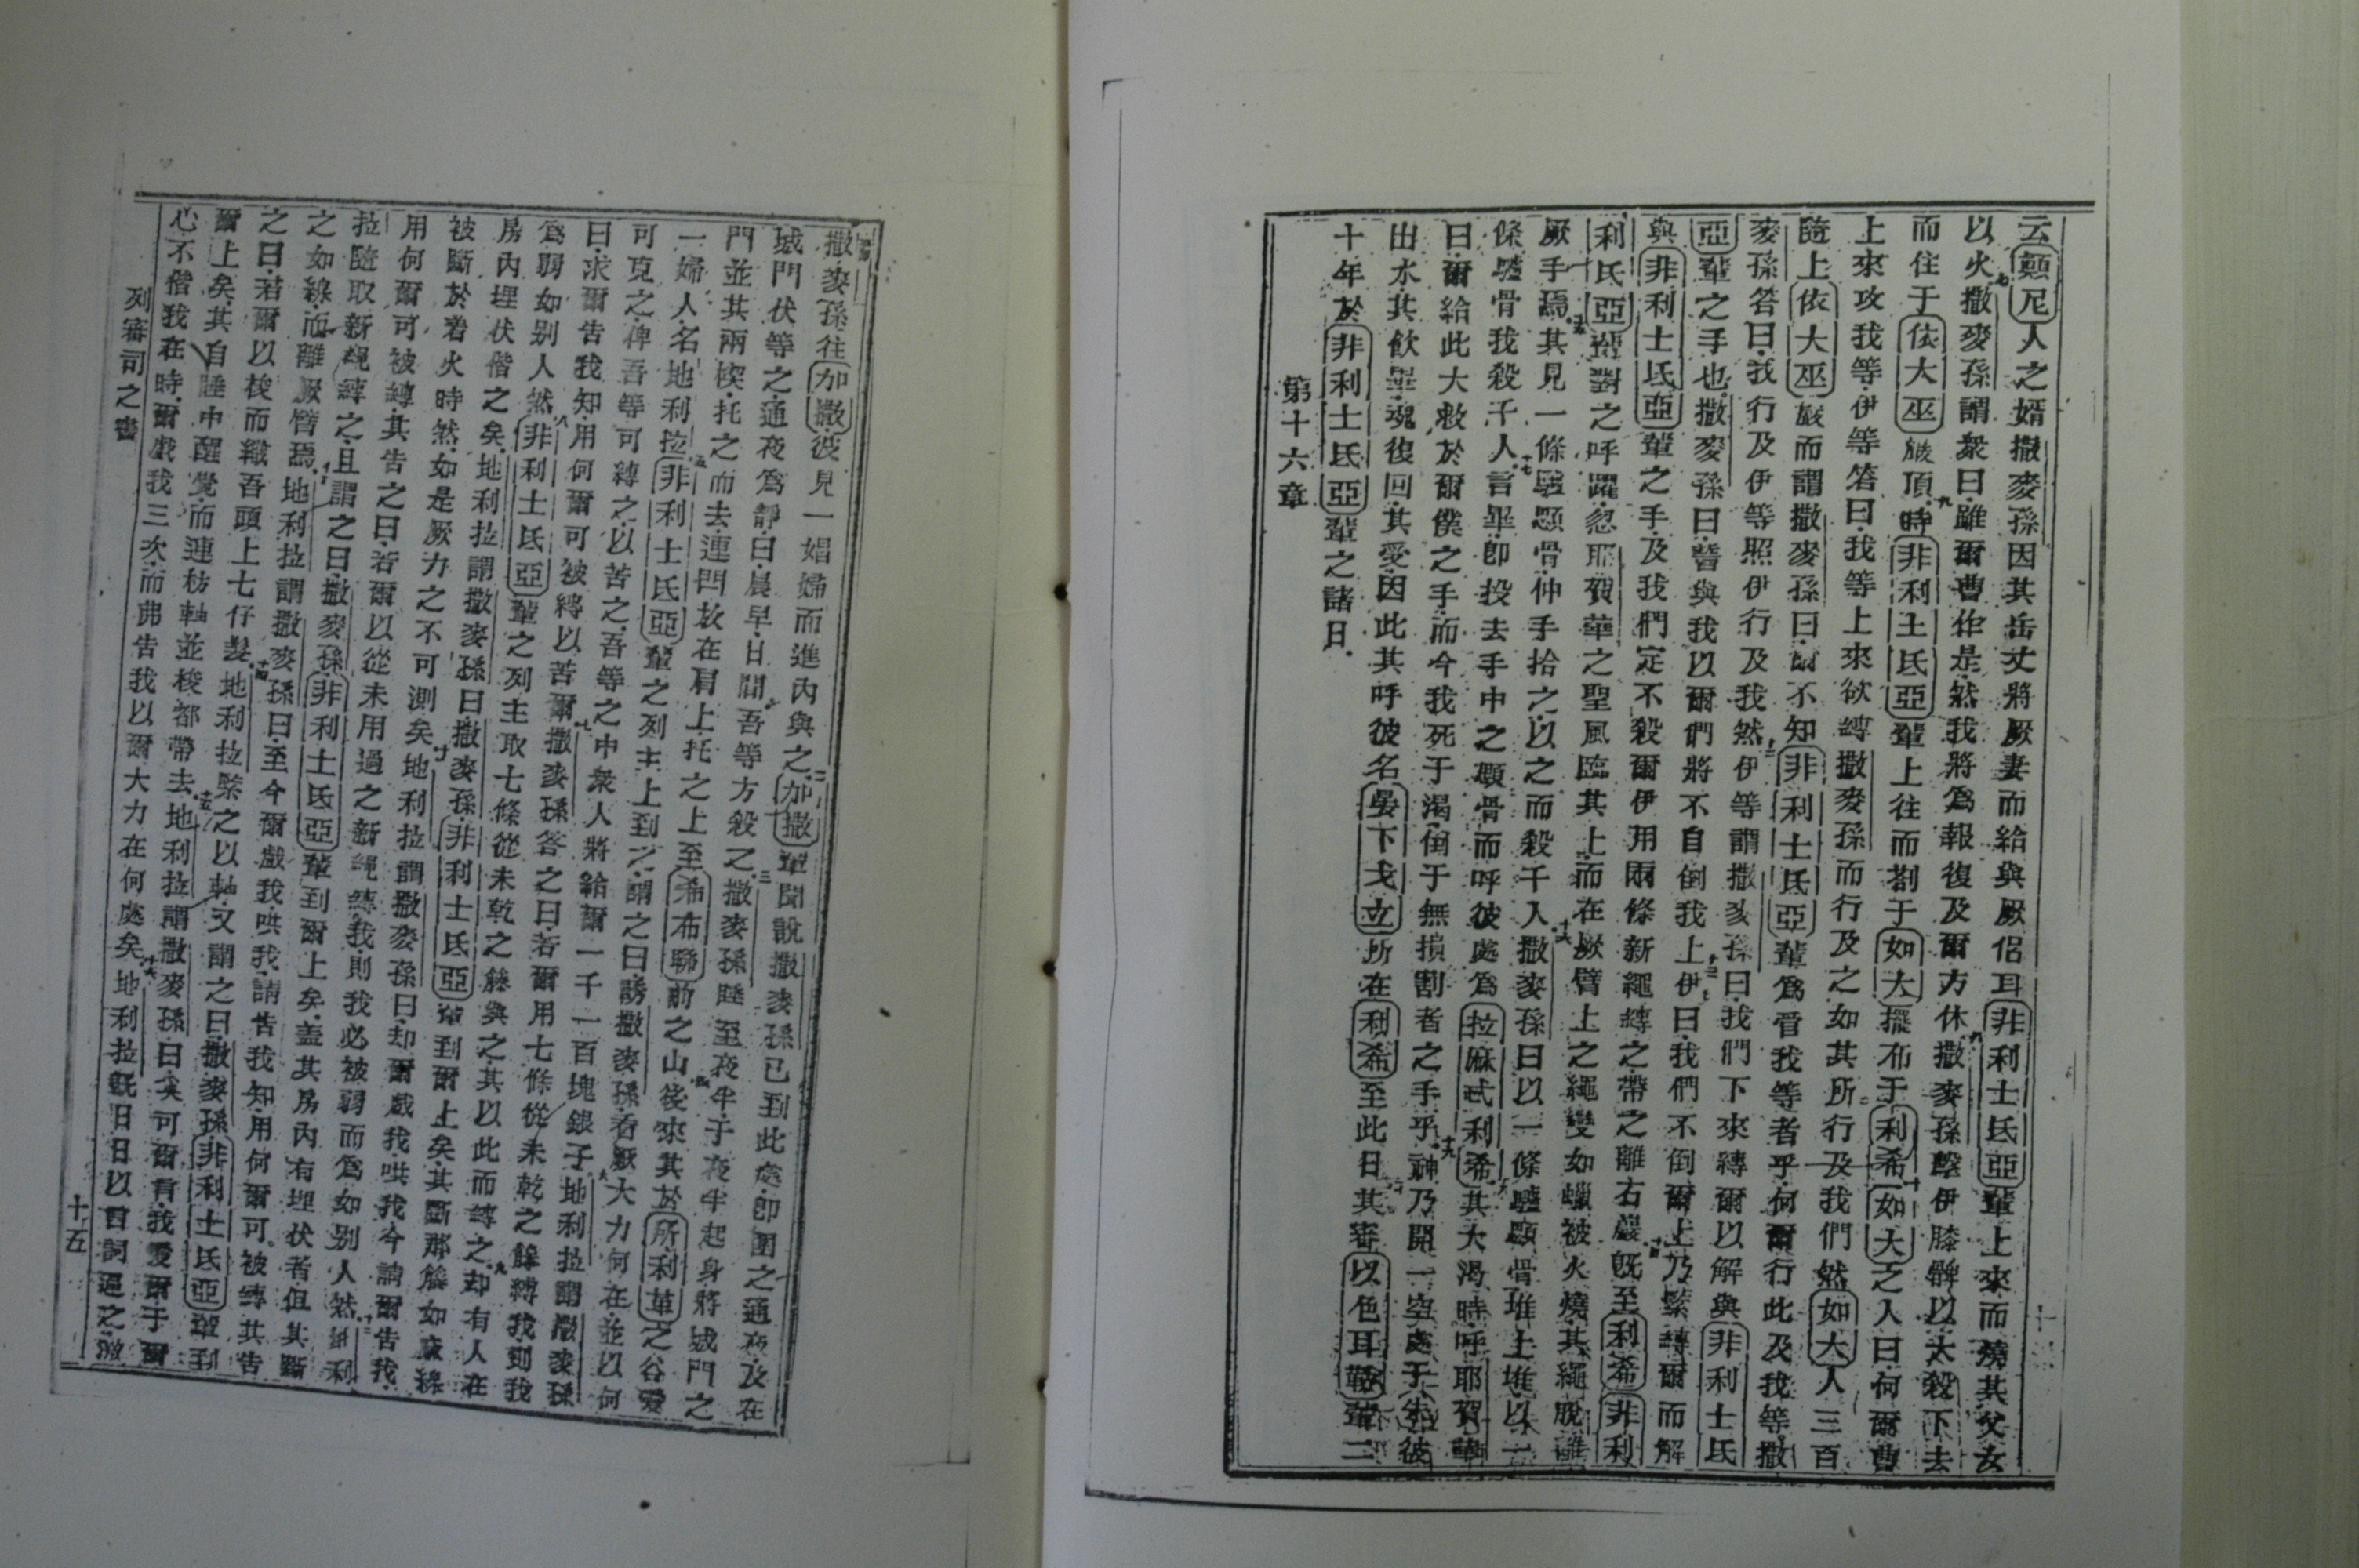 云顛尼人之婿撒麥孫因其岳丈將厥妻而給與厥侶耳非利士氐亞輩上來而燒其父女
以火七撒麥孫謂衆曰雖爾曹作是然我將爲報復及爾方休八撒麥孫擊伊膝髀以大殺下去
而住于依大巫巖頂九時非利士氐亞輩上往而劄于如大擺布于利希十如大之人曰何爾曹
上來攻我等伊等答曰我等上來欲縛撒麥孫而行及之如其所行及我們然如大人三百
隨上依大巫巖而謂撒麥孫曰爾不知非利士氐亞輩爲管我等者乎何爾行此及我等撒
麥孫答曰我行及伊等照伊行及我然十二伊等謂撒麥孫曰我們下來縛爾以解與非利士氐
亞輩之手也撒麥孫曰誓與我以爾們將不自倒我上十三伊曰我們不倒爾上乃緊縛爾而解
與非利士氐亞輩之手及我們定不殺爾伊用兩條新繩縛之帶之離右巖十四既至利希非利
利氐亞輩對之呼躍忽耶賀華之聖風臨其上而在厥臂上之繩變如蠟被火燒其繩脫離
厥手焉十五其見一條驢顋骨伸手拾之以之而殺千人十六撒麥孫曰以一條驢顋骨堆上堆以一
條驢骨我殺千人十七言畢卽投去手中之顋骨而呼彼處爲拉麻忒利希十八其大渴時呼耶賀華
曰爾給此大救於爾僕之手而今我死于渴倒于無損割者之手乎十九神乃開一空處于彼
出水其飲畢魂復回其愛因此其呼彼名晏下戈立所在利希至此日二十其審以色耳輩二
十年於非利士氐亞輩之諸日
第十六章
撒麥孫往加撒彼見一娼婦而進內與之二加撒輩聞說撒麥孫已到此處卽圍之通夜及在
城門伏等之通夜爲靜曰晨早日間吾等方殺之三撒麥孫睡至夜半于夜半起身將城門之
門並其兩楔托之而去連閂放在肩上托之上至希布聯前之山四後來其於所利革之谷愛
一婦人名地利拉五非利士氐亞輩之列主上到之謂之曰誘撒麥孫看厥大力何在並以何
可克之俾吾等可縛之以苦之吾等之中衆人將給爾一千一百塊銀子六地利拉謂撒麥孫
曰求爾告我知用何爾可被縛以苦爾七撒麥孫答之曰若爾用七條從未乾之籐縛我則我
爲弱如別人然八非利士氐亞輩之列主取七條從未乾之籐與之其以此而縛之九却有人在
房內埋伏偕之矣地利拉謂撒麥孫曰撒麥孫非利士氐亞輩到爾上矣其斷那籐如麻線
被斷於着火時然如是厥力之不可測矣十地利拉謂撒麥孫曰却爾戲我哄我今請爾告我
用何爾可被縛其告之曰若爾以從未用過之新繩縛我則我必被弱而爲如別人然十二地利
拉隨取新繩縛之且謂之曰撒麥孫非利士氐亞輩到爾上矣蓋其房內有埋伏者但其斷
之如線而離厥臂焉十三地利拉謂撒麥孫曰至今爾戲我哄我請告我知用何爾可被縛其告
之曰若爾以梭而織吾頭上七仔髮十四地利拉緊之以軸又謂之曰撒麥孫非利士氐亞輩到
爾上矣其自睡中醒覺而連紡軸並梭都帶去十五地利拉謂撒麥孫曰奚可爾言我愛爾于爾
心不偕我在時爾戲我三次而弗告我以爾大力在何處矣十六地利拉既日日以言詞逼之激
列審司之書
十五